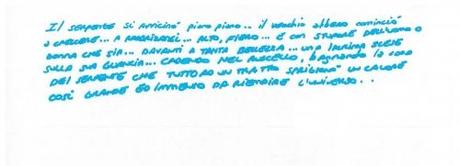 Il serpente si avvicinò piano piano.. il vecchio albero cominciò
a crescere... a raddrizzarsi... alto, fiero... e con stupore dell'uomo o
donna che sia... davanti a tanta bellezza... una lacrima scese
sulla sua guancia... cadendo nel ruscello, bagnando la coda
del serpente che tutto ad un tratto sprigionò un calore
così grande ed immenso da riempire l'universo...